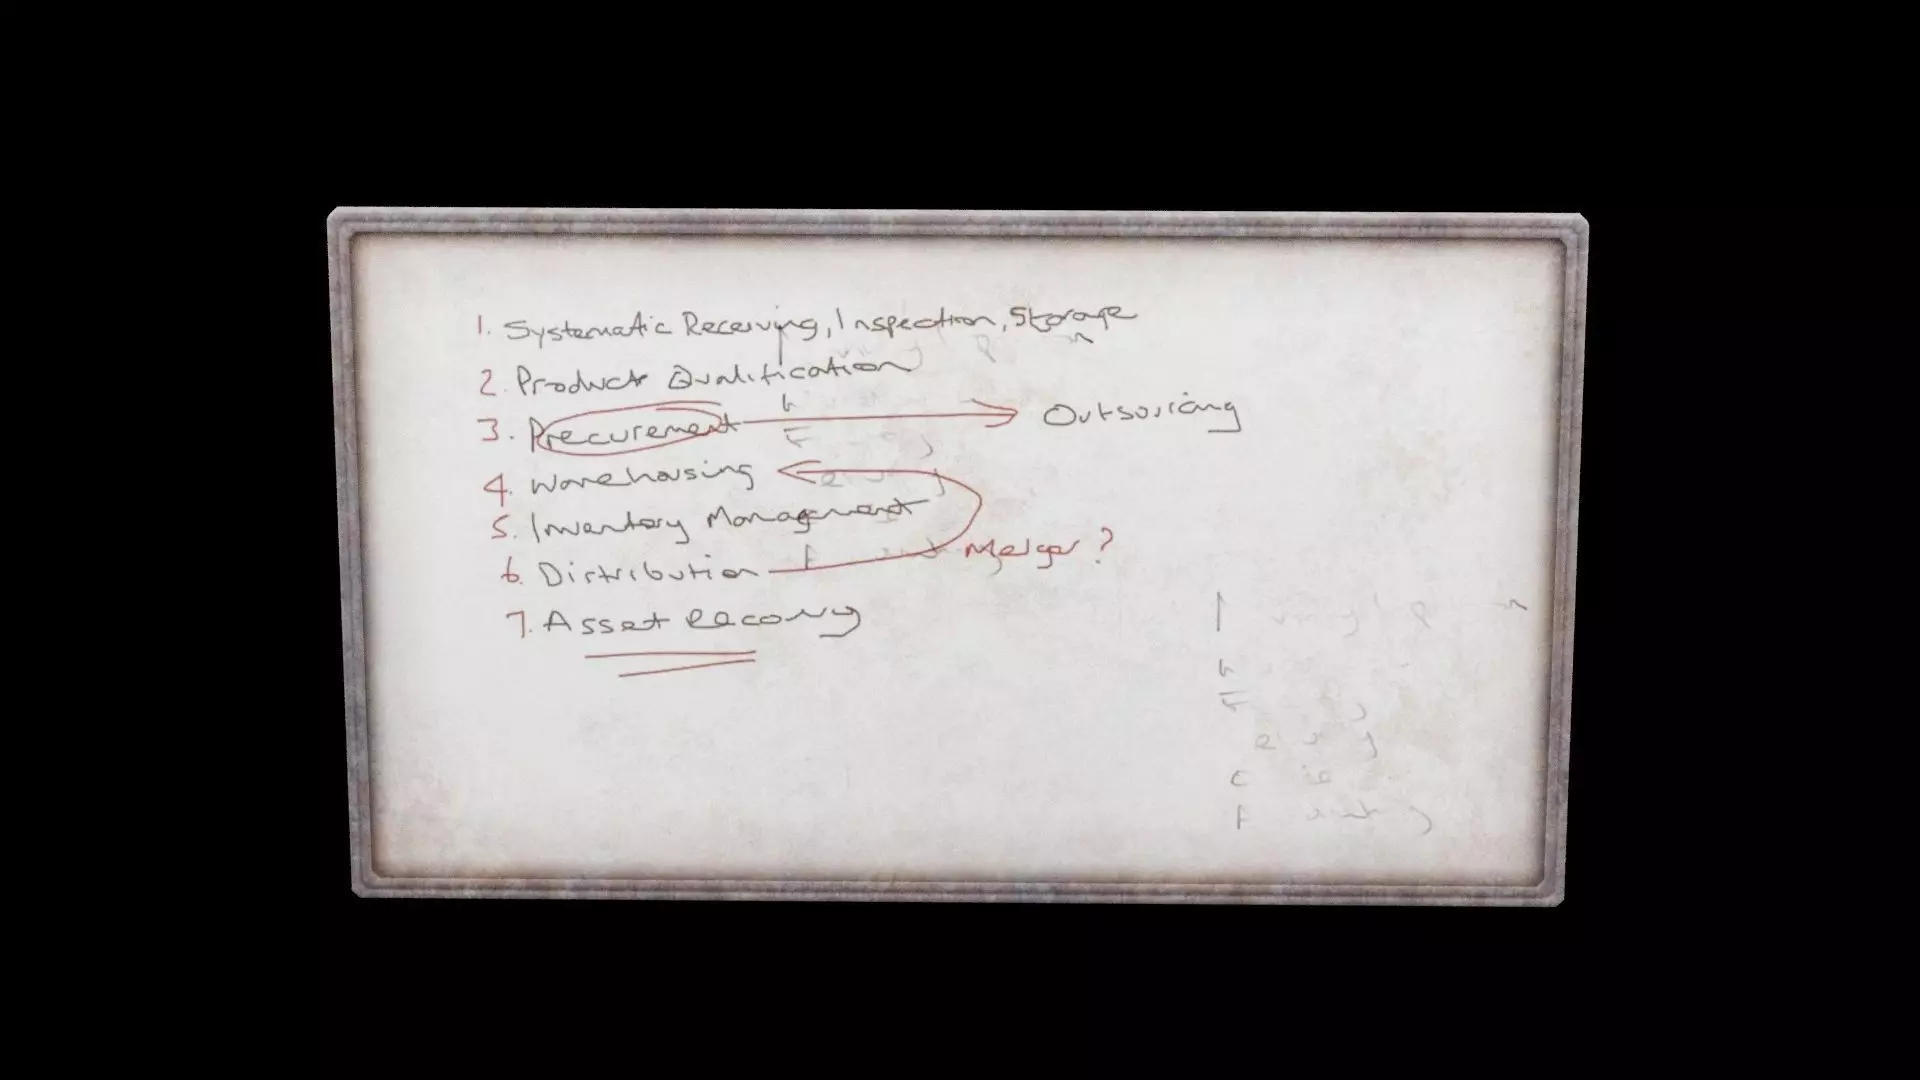 1. Systematic Receiving, Inspection, Storage
2. Product Qualification
3. Precurement → Outsourcing
4. Warehousing
5. Inventory Management
6. Distribution Merger?
7. Asset Recovry